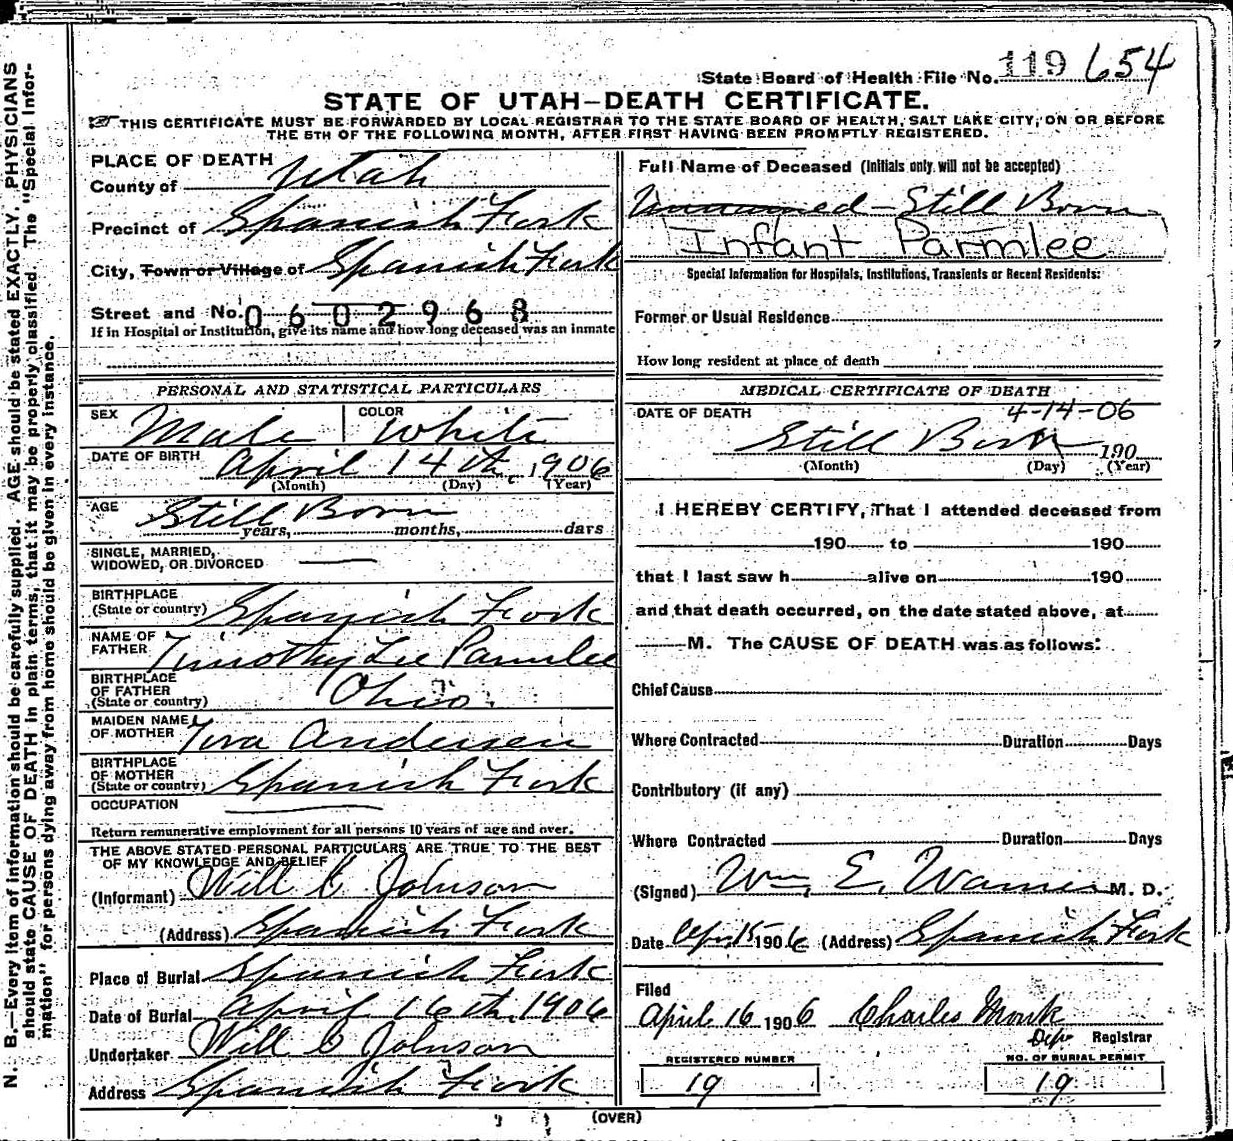 State Board of Health File No. 119 654
STATE OF UTAH—DEATH CERTIFICATE.
THIS CERTIFICATE MUST BE FORWARDED BY LOCAL REGISTRAR TO THE STATE BOARD OF HEALTH, SALT LAKE CITY, ON OR BEFORE
THE 5TH OF THE FOLLOWING MONTH, AFTER FIRST HAVING BEEN PROMPTLY REGISTERED.
N. B.—Every item of information should be carefully supplied. AGE should be stated EXACTLY. PHYSICIANS
should state CAUSE OF DEATH in plain terms, that it may be properly classified. The "Special Infor-
mation" for persons dying away from home should be given in every instance.
PLACE OF DEATH
County of Utah
Precinct of Spanish Fork
City, Town or Village of Spanish Fork
Street and No. 0602968
If in Hospital or Institution, give its name and how long deceased was an inmate
PERSONAL AND STATISTICAL PARTICULARS
SEX Male COLOR White
DATE OF BIRTH April 14th, 1906
(Month) (Day) (Year)
AGE Still Born
years, months, days
SINGLE, MARRIED,
WIDOWED, OR DIVORCED
BIRTHPLACE
(State or country) Spanish Fork
NAME OF
FATHER Timothy Lee Parmlee
BIRTHPLACE
OF FATHER
(State or country) Ohio.
MAIDEN NAME
OF MOTHER Andersen
BIRTHPLACE
OF MOTHER
(State or country) Spanish Fork
OCCUPATION
Return remunerative employment for all persons 10 years of age and over.
THE ABOVE STATED PERSONAL PARTICULARS ARE TRUE TO THE BEST
OF MY KNOWLEDGE AND BELIEF
(Informant) Will C Johnson
(Address) Spanish Fork
Place of Burial Spanish Fork
Date of Burial April 16th, 1906
Undertaker Will C Johnson
Address Spanish Fork
Full Name of Deceased (Initials only will not be accepted)
Unnamed—Still Born
Infant Parmlee
Special Information for Hospitals, Institutions, Transients or Recent Residents:
Former or Usual Residence
How long resident at place of death
MEDICAL CERTIFICATE OF DEATH
DATE OF DEATH 4-14-06
Still Born 190
(Month) (Day) (Year)
I HEREBY CERTIFY, That I attended deceased from
190 to 190
that I last saw h alive on 190
and that death occurred, on the date stated above, at
M. The CAUSE OF DEATH was as follows:
Chief Cause
Where Contracted Duration Days
Contributory (if any)
Where Contracted Duration Days
(Signed) Wm. E. Warner M. D.
Date Apr. 15 1906 (Address) Spanish Fork
Filed
April 16 1906 Charles Monk
Dep Registrar
REGISTERED NUMBER NO. OF BURIAL PERMIT
19 19
(OVER)